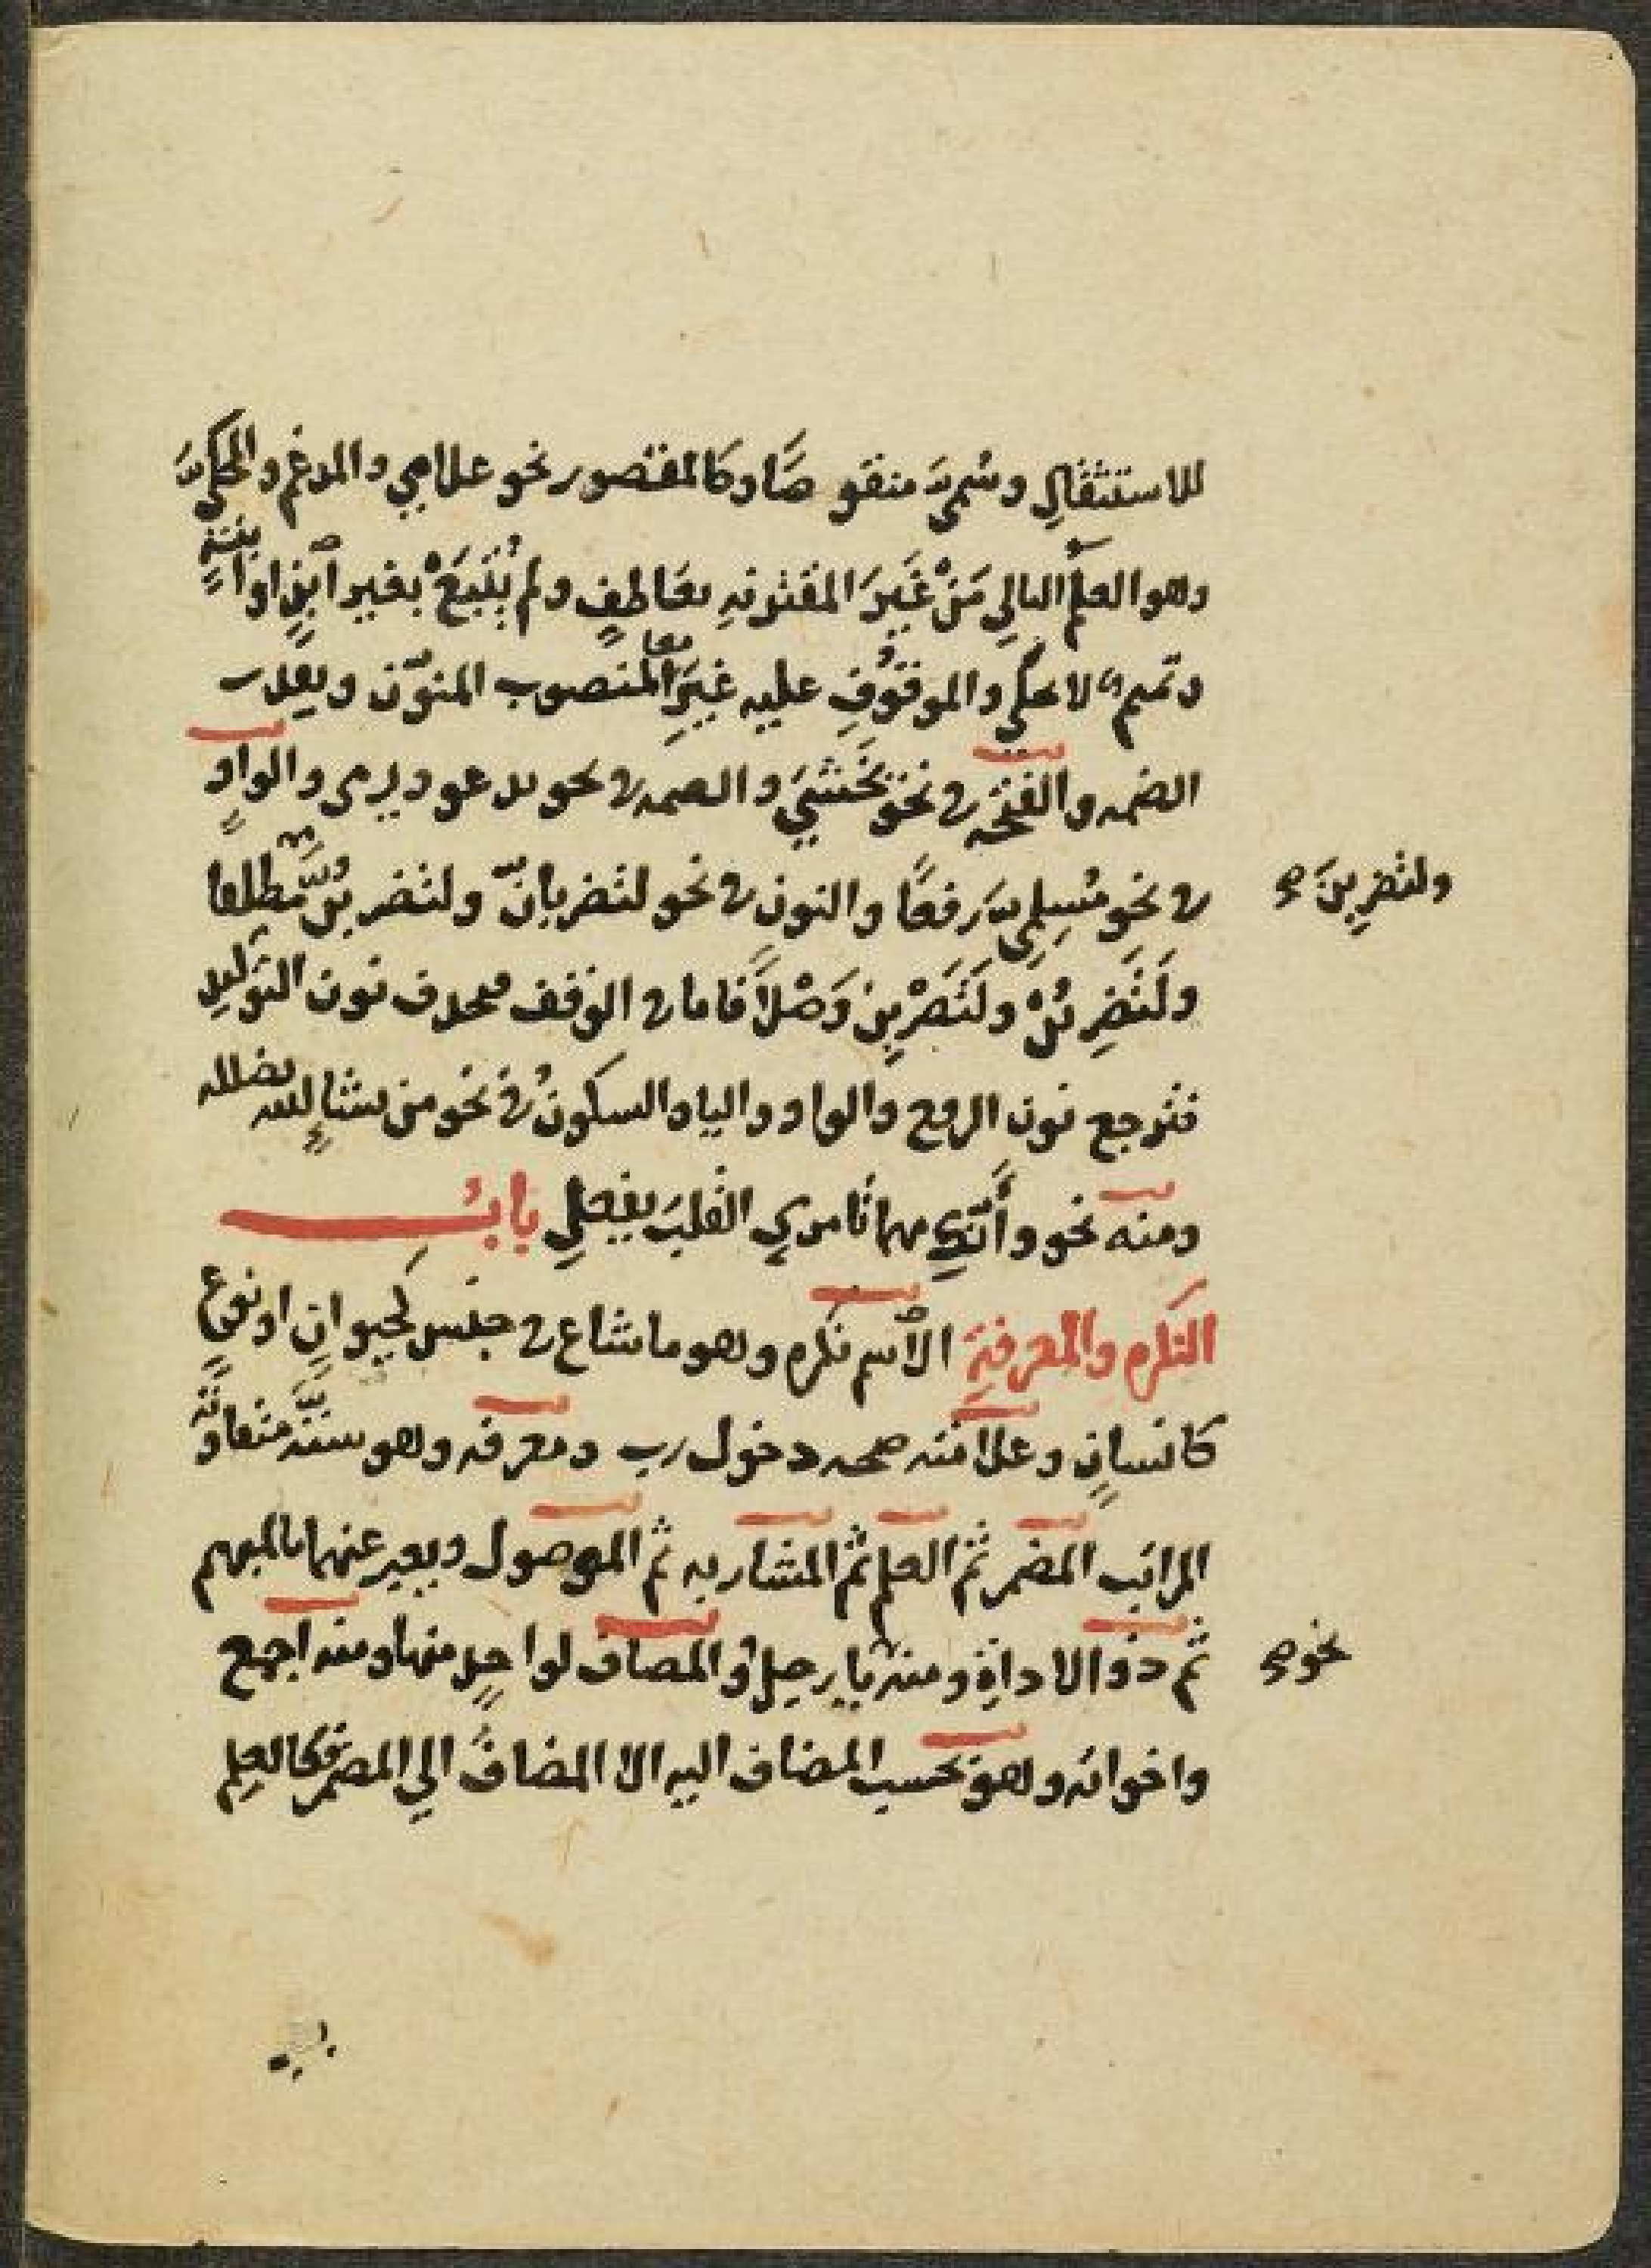 للاستثقالِ وسُمىَ منقوصًا وكالمقصور نحو غلامي والمدغم والمحكىَ
وهو العلَم التالي مَنْ غَيرَ المقترنه بعاطفٍ ولم يُتبَعْ بغير ابنٍ او ابنةٍ
وتميم لا تحكى والموقوفِ عليه غيرَ المنصوب المنوّن ويقدر
الضمه والفتحه فى نحو يخشىَ والضمه فى نحو يدعو ويرمى والواو
فى نحو مُسلِمىَّ رفعًا والنون فى نحو لتضربانّ ولتضربُنَّ مطلقا
ولتضرِبُنْ ولتضْرِبِن وَصْلاً فاما فى الوقف فتحذف نون التوكيد
فترجع نون الرفع والواو والياء والسكونُ فى نحو من يشاِ الله يضلله
ومنه نحو وأنّكِ مهما تامري القلبَ يفعلِ بابُ
النكره والمعرفةِ الاسم نكره وهو ما شاع فى جنس كحيوانٍ او نوعٍ
كانسانٍ وعلامته صحه دخول رب ومعرفه وهو ستّه متفاوتة
المراتب المضمر ثم العلم ثم المشار به ثم الموصول ويعبر عنهما بالمبهم
ثم ذو الاداةِ ومنه يا رجلُ والمضاف لواحدٍ منها ومنه اجمع
واخواته وهو بحسب المضاف اليه الا المضافَ الى المضمر فكالعلم
ولتضرِبِنَ صح
نحو صح